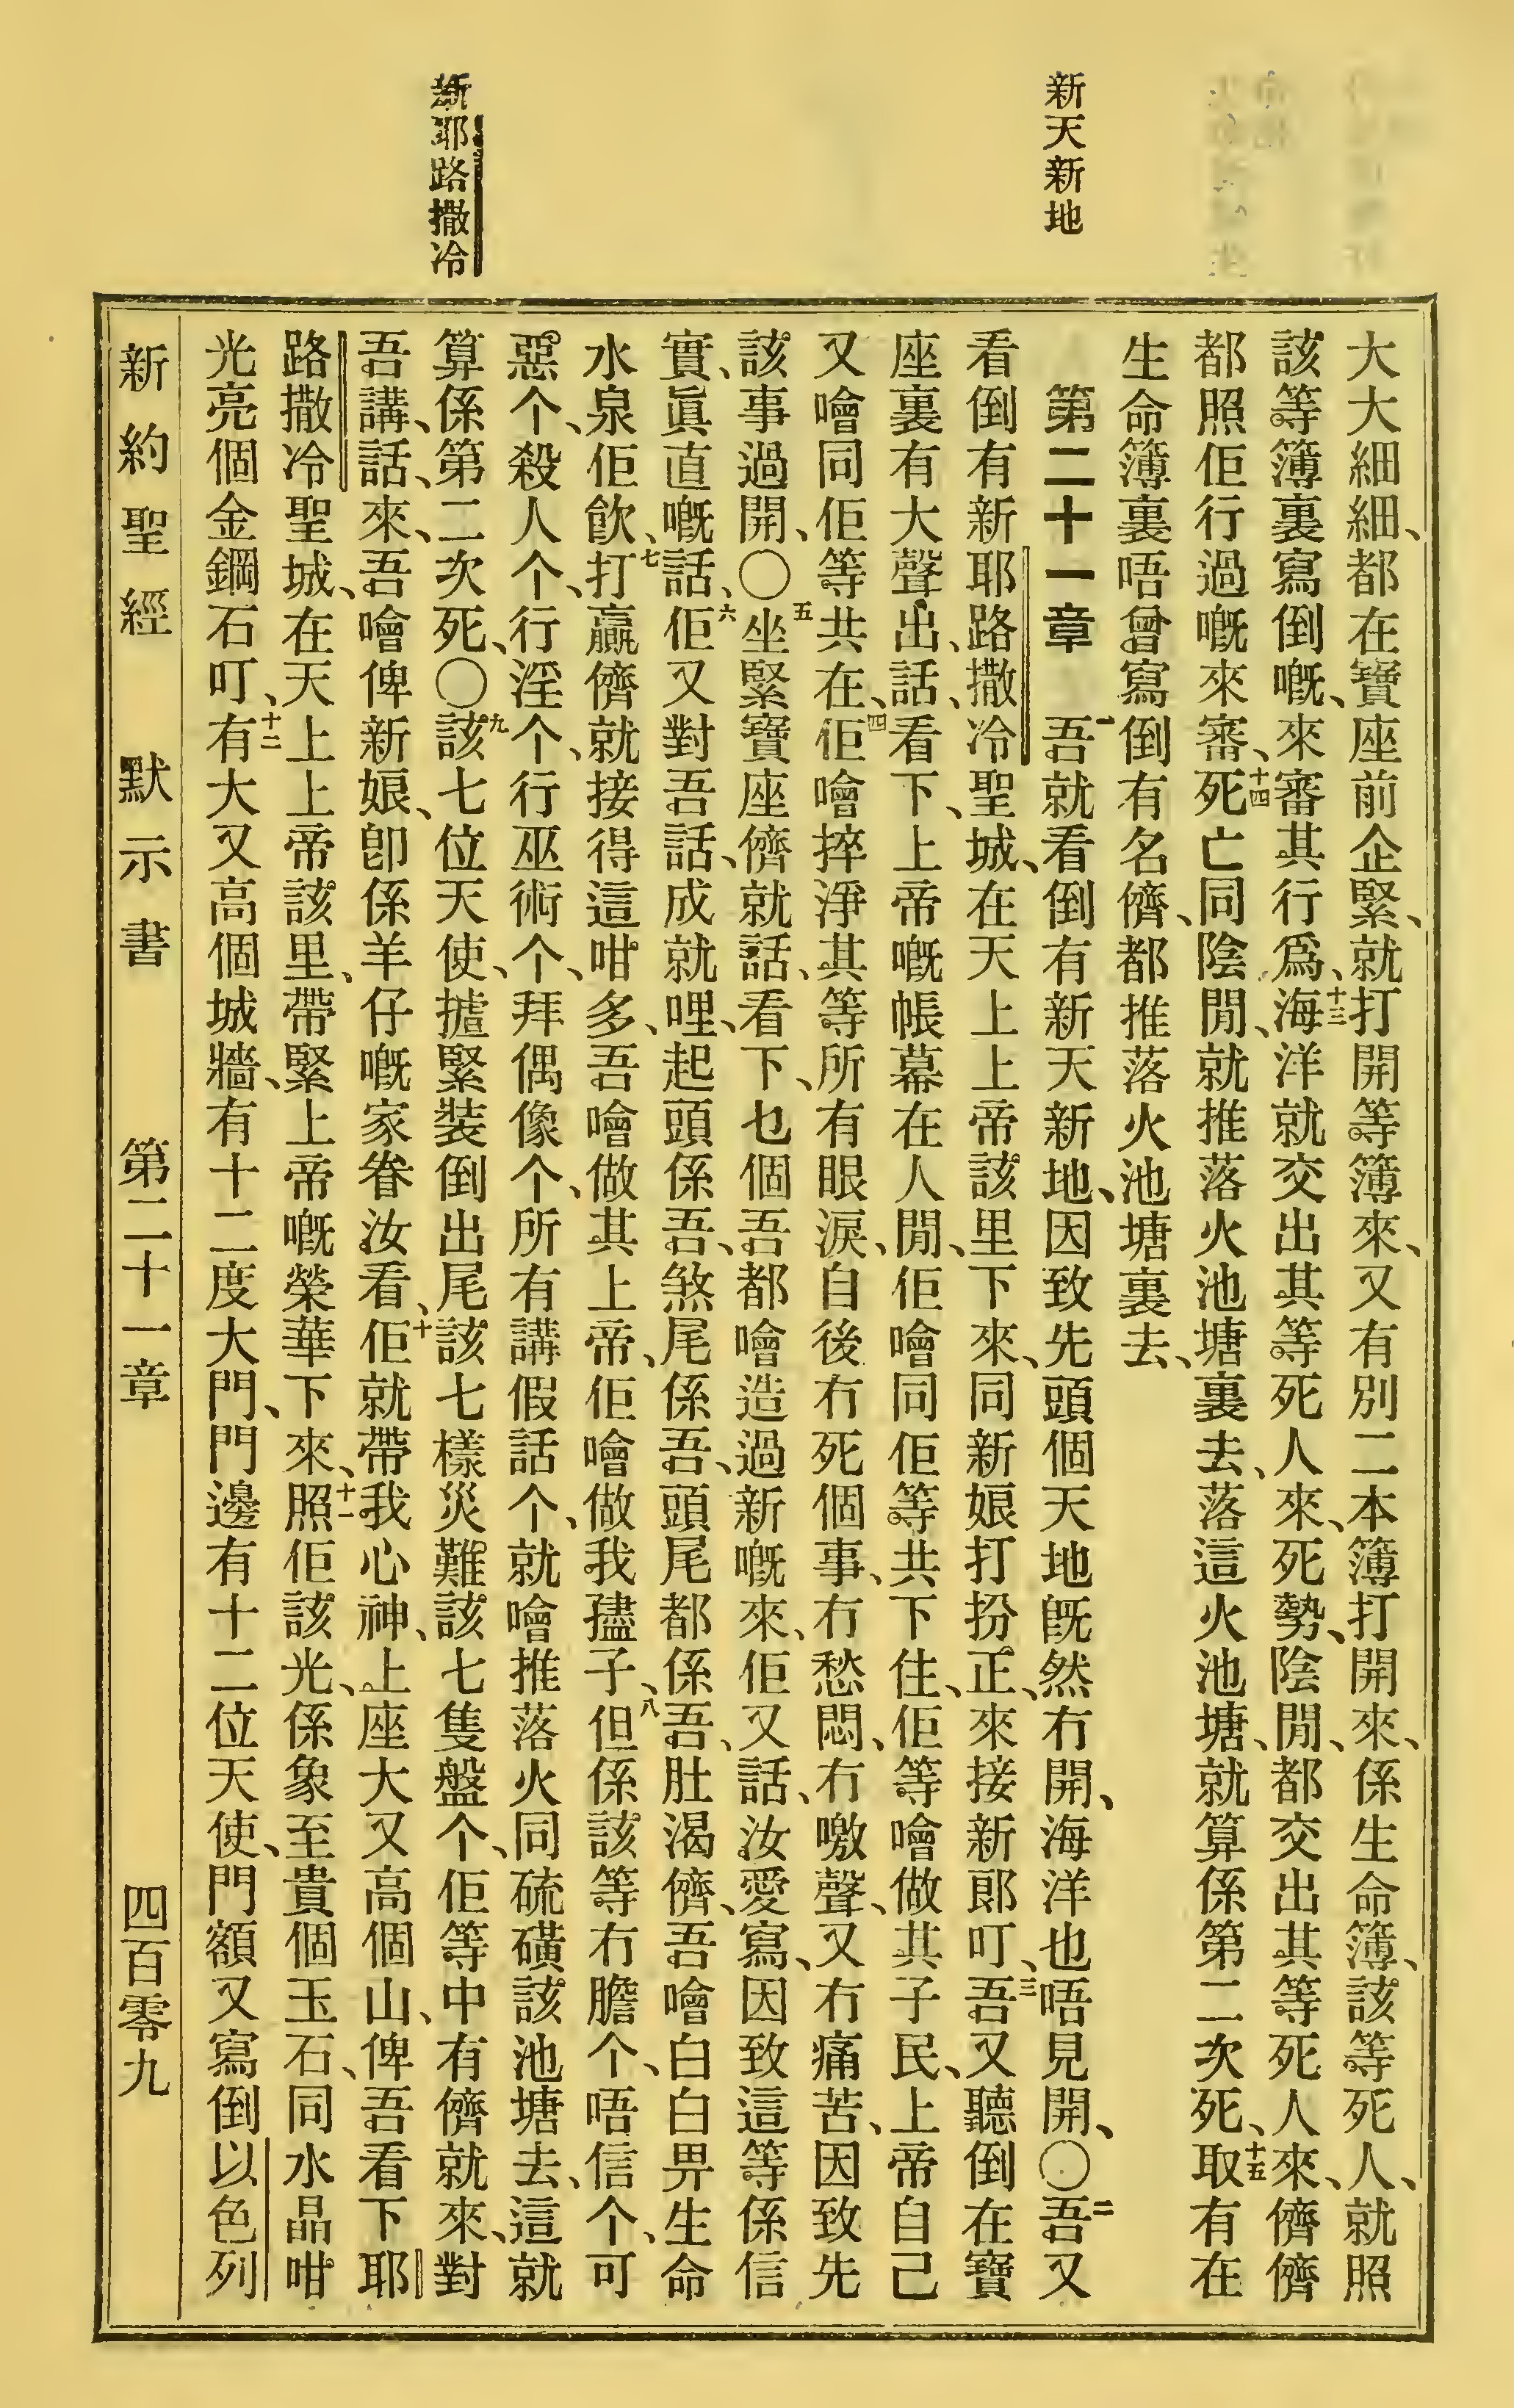 新天新地
新耶路撒冷
大大細細、都在寶座前企緊、就打開等簿來、又有別二本簿打開來、係生命簿、該等死人、就照
該等簿裏寫倒嘅、來審其行爲、十三海洋就交出其等死人來、死勢、陰閒、都交出其等死人來、儕儕
都照佢行過嘅來審、十四死亡同陰閒、就推落火池塘裏去、落這火池塘、就算係第二次死、十五取有在
生命簿裏唔曾寫倒有名儕、都推落火池塘裏去、
第二十一章 一吾就看倒有新天新地、因致先頭個天地旣然冇開、海洋也唔見開、〇二吾又
看倒有新耶路撒冷聖城、在天上上帝該里下來、同新娘打扮正、來接新郞叮、三吾又聽倒在寶
座裏有大聲出、話、看下、上帝嘅帳幕在人閒、佢噲同佢等共下住、佢等噲做其子民、上帝自己
又噲同佢等共在、四佢噲捽淨其等所有眼淚、自後冇死個事、冇愁悶、冇噭聲、又冇痛苦、因致先
該事過開、〇五坐緊寶座儕就話、看下、乜個吾都噲造過新嘅來、佢又話、汝愛寫、因致這等係信
實、眞直嘅話、六佢又對吾話、成就哩、起頭係吾、煞尾係吾、頭尾都係吾、肚渴儕、吾噲白白畀生命
水泉佢飮、七打贏儕就接得這咁多、吾噲做其上帝、佢噲做我孻子、八但係該等冇膽个、唔信个、可
惡个、殺人个、行淫个、行巫術个、拜偶像个、所有講假話个、就噲推落火同硫磺該池塘去、這就
算係第二次死、〇九該七位天使、摣緊裝倒出尾該七樣災難該七隻盤个、佢等中有儕就來、對
吾講、話、來、吾噲俾新娘、卽係羊仔嘅家眷汝看、十佢就帶我心神、上座大又高個山、俾吾看下耶
路撒冷聖城、在天上上帝該里、帶緊上帝嘅榮華下來、十一照佢該光、係象至貴個玉石、同水晶咁
光亮個金鋼石叮、十二有大又高個城牆、有十二度大門、門邊有十二位天使、門額又寫倒以色列
新約聖經 默示書 第二十一章 四百零九